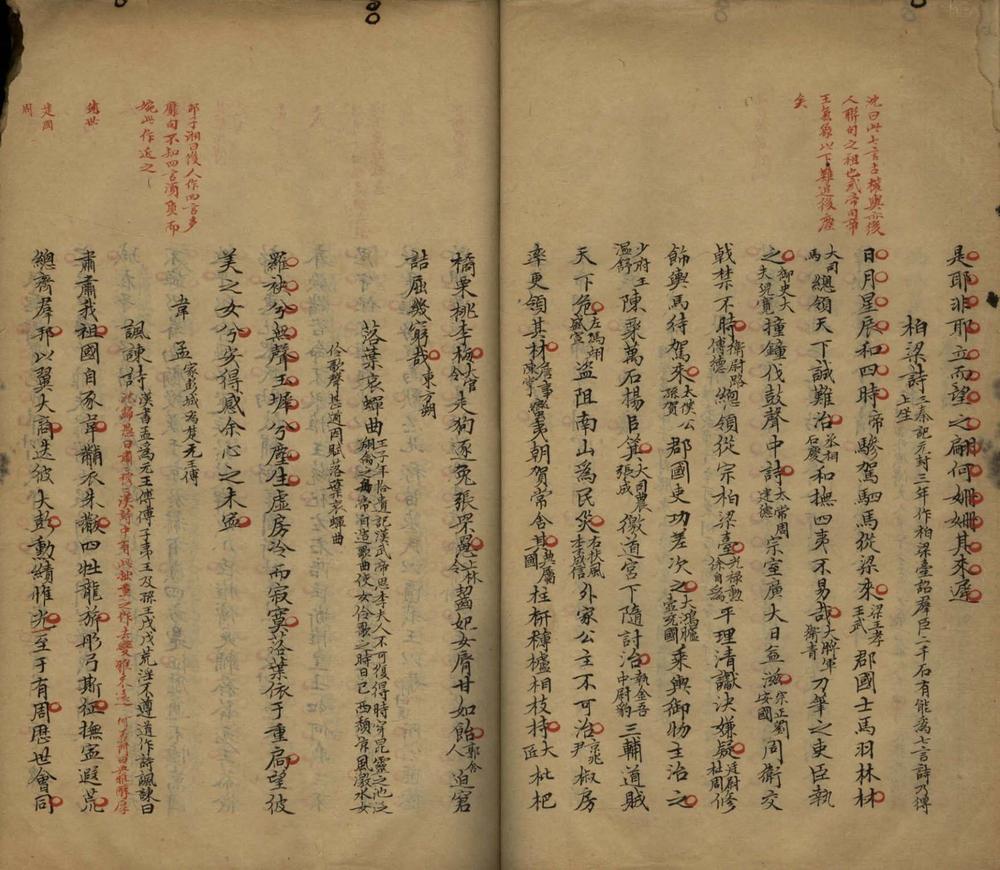 沈曰此七言古權輿亦後
人聯句之祖也武帝句帝
王氣象以下難追後塵
矣
是耶非耶立而望之翩何姍姍其來遲
柏梁詩三秦記元封三年作柏梁臺詔羣臣二千石有能為七言詩乃得上坐
日月星辰和四時帝驂駕駟馬從梁來梁王孝王武郡國士馬羽林林
大司馬總領天下誠難治丞相石慶和撫四夷不易哉大將軍衛青刀筆之吏臣執
之御史大夫兒寬撞鐘伐鼓聲中詩太常周建德宗室廣大日益滋宗正劉安國周衛交
戟禁不時衛尉路博德總領從宗柏梁臺光祿勳徐自為平理清讞決嫌疑廷尉杜周修
飾輿馬待駕來太僕公孫賀郡國吏功差次之大鴻臚壼充國乘輿御物主治之
少府王溫舒陳粟萬石揚目箕大司農張成徼道宮下隨討治執金吾中尉豹三輔盜賊
天下危左馮翊盛宣盜阻南山為民災右扶風李成信外家公主不可治京兆尹椒房
率更領其材詹事陳掌蠻夷朝賀常舍其典屬國柱枅欂櫨相枝持大匠枇杷
橘栗桃李梅大官令走狗逐兔張罘罳上林令齧妃女脣甘如飴郭舍人迫窘
詰屈幾窮哉東方朔
落葉哀蟬曲王子年拾遺記漢武帝思李夫人不可復得時穿昆靈之池泛翔禽之舟帝自造歌曲使女伶歌之時日已西頹涼風激水女
伶歌聲甚遒因賦落葉哀蟬曲
羅袂兮無聲玉墀兮塵生虛房冷而寂寞落葉依于重扃望彼
美之女兮安得感余心之未寧
韋孟家彭城為楚元王傅
邵子湘曰後人作四言多
靡句不知四言須質而
婉此作近之
諷諫詩漢書孟為元王傅傅子夷王及孫王戊戊荒淫不遵道作詩諷諫曰
肅肅我祖國自豕韋黼衣朱黻四牡龍旂彤弓斯征撫寧遐荒
總世
總齊羣邦以翼大商迭彼大彭勳績惟光至于有周歷世會同
是周